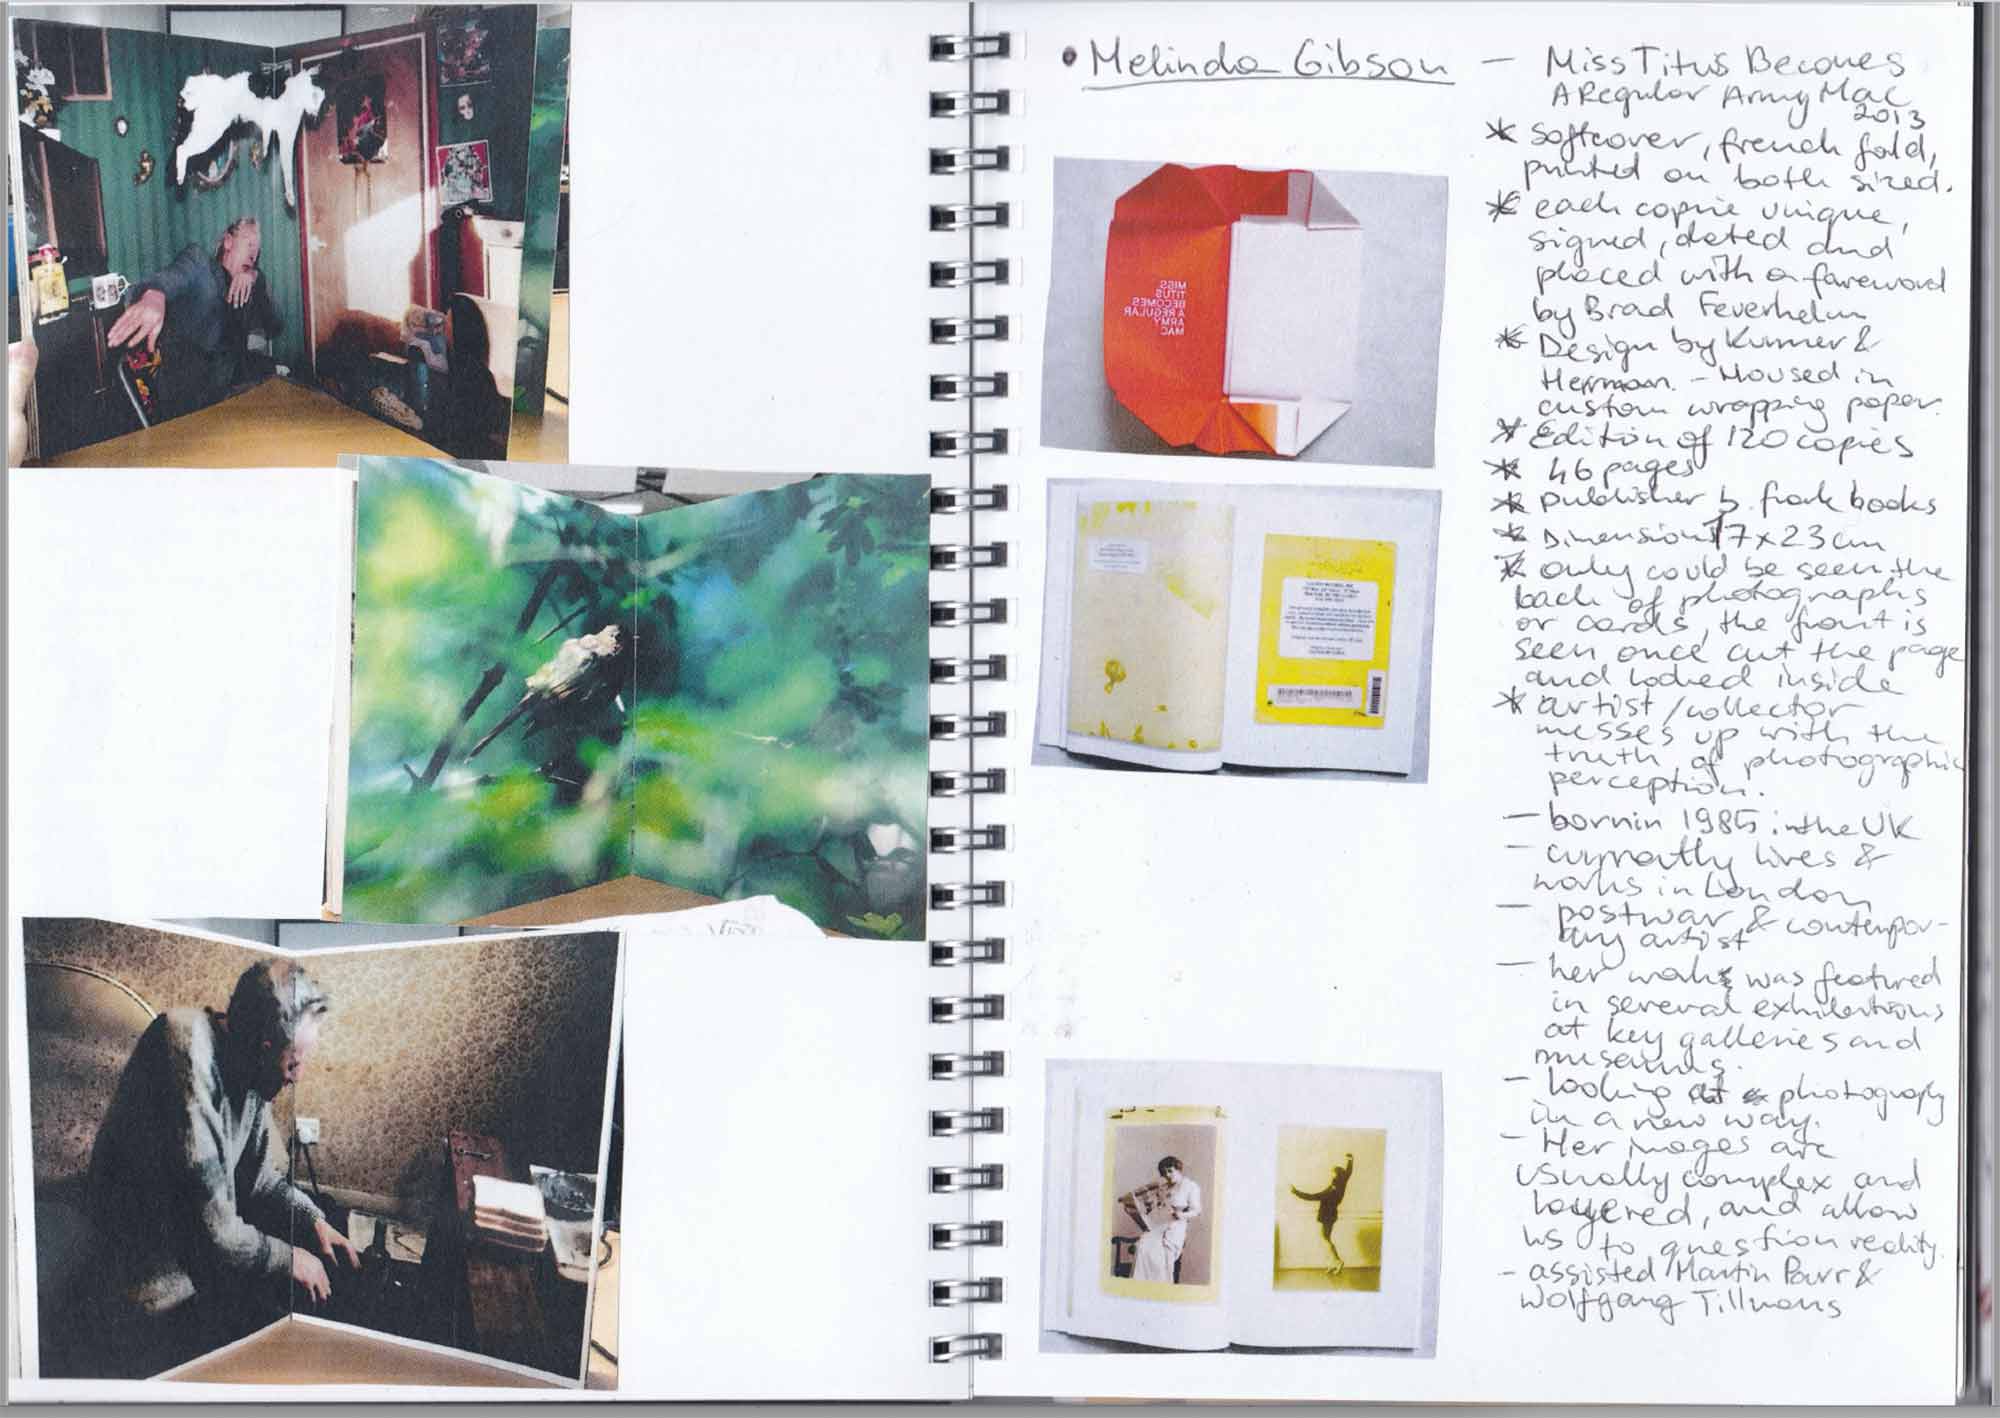 • Melinda Gibson
— Miss Titus Becomes
A Regular Army Mac
2013
* softcover, french fold,
printed on both sized.
* each copie unique,
signed, dated and
placed with a foreword
by Brad Feuerhelm
* Design by Kummer &
Herrman. - Housed in
custom wrapping paper.
* Edition of 120 copies
* 46 pages
* publisher b. frank books
* Dimensions 17x23cm
* only could be seen the
back of photographs
or cards, the front is
seen once cut the page
and looked inside
* artist/collector
messes up with the
truth of photographic
perception.
— born in 1985 in the UK
— currently lives &
works in London
— postwar & contempor-
any artist
— her works was featured
in several exhibitions
at key galleries and
museums.
— looking at photography
in a new way.
— Her images are
usually complex and
layered, and allow
us to question reality.
— assisted Martin Parr &
Wolfgang Tillmans
MISS
TITUS
BECOMES
A REGULAR
ARMY
MAC